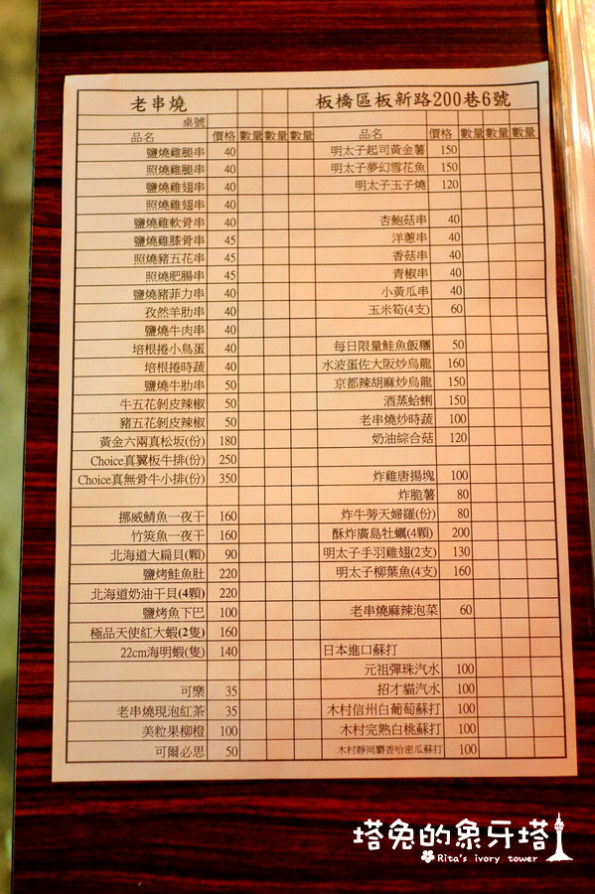 老串燒
板橋區板新路200巷6號
桌號
品名 價格 數量 數量 數量
鹽燒雞腿串 40
照燒雞腿串 40
鹽燒雞翅串 40
照燒雞翅串 40
鹽燒雞軟骨串 40
鹽燒雞膝骨串 45
照燒豬五花串 45
照燒肥腸串 45
鹽燒豬菲力串 40
孜然羊肋串 40
鹽燒牛肉串 40
培根捲小鳥蛋 40
培根捲時蔬 40
鹽燒牛肋串 50
牛五花剝皮辣椒 50
豬五花剝皮辣椒 50
黃金六兩真松坂(份) 180
Choice真翼板牛排(份) 250
Choice真無骨牛小排(份) 350
挪威鯖魚一夜干 160
竹筴魚一夜干 160
北海道大扁貝(顆) 90
鹽烤鮭魚肚 220
北海道奶油干貝(4顆) 220
鹽烤魚下巴 100
極品天使紅大蝦(2隻) 160
22cm海明蝦(隻) 140
可樂 35
老串燒現泡紅茶 35
美粒果柳橙 100
可爾必思 50
品名 價格 數量 數量 數量
明太子起司黃金薯 150
明太子夢幻雪花魚 150
明太子玉子燒 120
杏鮑菇串 40
洋蔥串 40
香菇串 40
青椒串 40
小黃瓜串 40
玉米筍(4支) 60
每日限量鮭魚飯糰 50
水波蛋佐大阪炒烏龍 160
京都辣胡麻炒烏龍 150
酒蒸蛤蜊 150
老串燒炒時蔬 100
奶油綜合菇 120
炸雞唐揚塊 100
炸脆薯 80
炸牛蒡天婦羅(份) 80
酥炸廣島牡蠣(4顆) 200
明太子手羽雞翅(2支) 130
明太子柳葉魚(4支) 160
老串燒麻辣泡菜 60
日本進口蘇打
元祖彈珠汽水 100
招才貓汽水 100
木村信州白葡萄蘇打 100
木村完熟白桃蘇打 100
木村靜岡麝香哈密瓜蘇打 100
塔兔的象牙塔
Rita's ivory tower